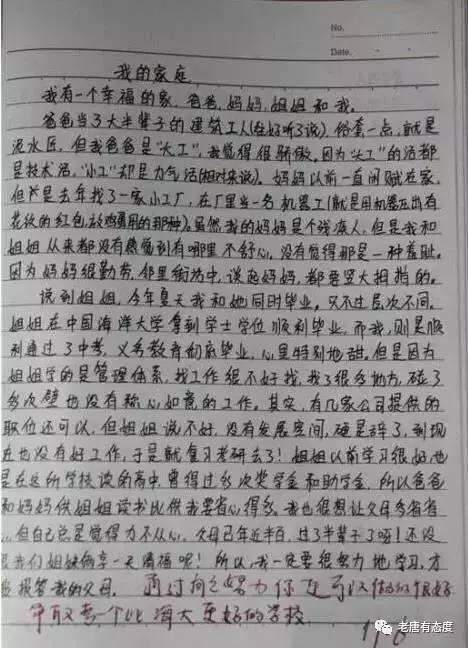 No.
Date.
我的家庭
我有一个幸福的家,爸爸,妈妈,姐姐和我。
爸爸当了大半辈子的建筑工人(在好听了说),俗套一点,就是
泥水匠,但我爸爸是“大工”,我觉得很骄傲。因为“大工”的活都
是技术活,“小工”却是力气活(相对来说)。妈妈以前一直闲赋在家,
但是去年找了一家小工厂,在厂里当一名机器工(就是用机器压出有
花纹的红包,放鸡蛋用的那种)。虽然我的妈妈是个残疾人,但是我和
姐姐从来都没有感觉到有哪里不舒心,没有觉得那是一种羞耻。
因为妈妈很勤劳,邻里街坊中,谈起妈妈,都要竖大拇指的。
说到姐姐,今年夏天我和她同时毕业。只不过层次不同。
姐姐在中国海洋大学拿到学士学位顺利毕业,而我,则是顺
利通过了中考,义务教育彻底毕业,心里特别地甜。但是因为
姐姐学的是管理体系,找工作很不好找,找了很多地方,碰了
多次壁也没有称心如意的工作。其实,有几家公司提供的
职位还可以,但姐姐说不好,没有发展空间,硬是辞了,到现
在也没有好工作,于是就复习考研去了!姐姐以前学习很好也
是在这所学校读的高中,曾得过多次奖学金和助学金,所以爸爸
和妈妈供姐姐读书比供我要省心得多。我也很想让父母多省省
但自己总是觉得力不从心。父母已年近半百,过了半辈子了呀!还没
我们姐妹俩享一天清福呢!所以,我一定要很努力地学习,才
报答我的父母。通过自己努力你也可以做的很好
争取考一个比海大更好的学校
老唐有态度